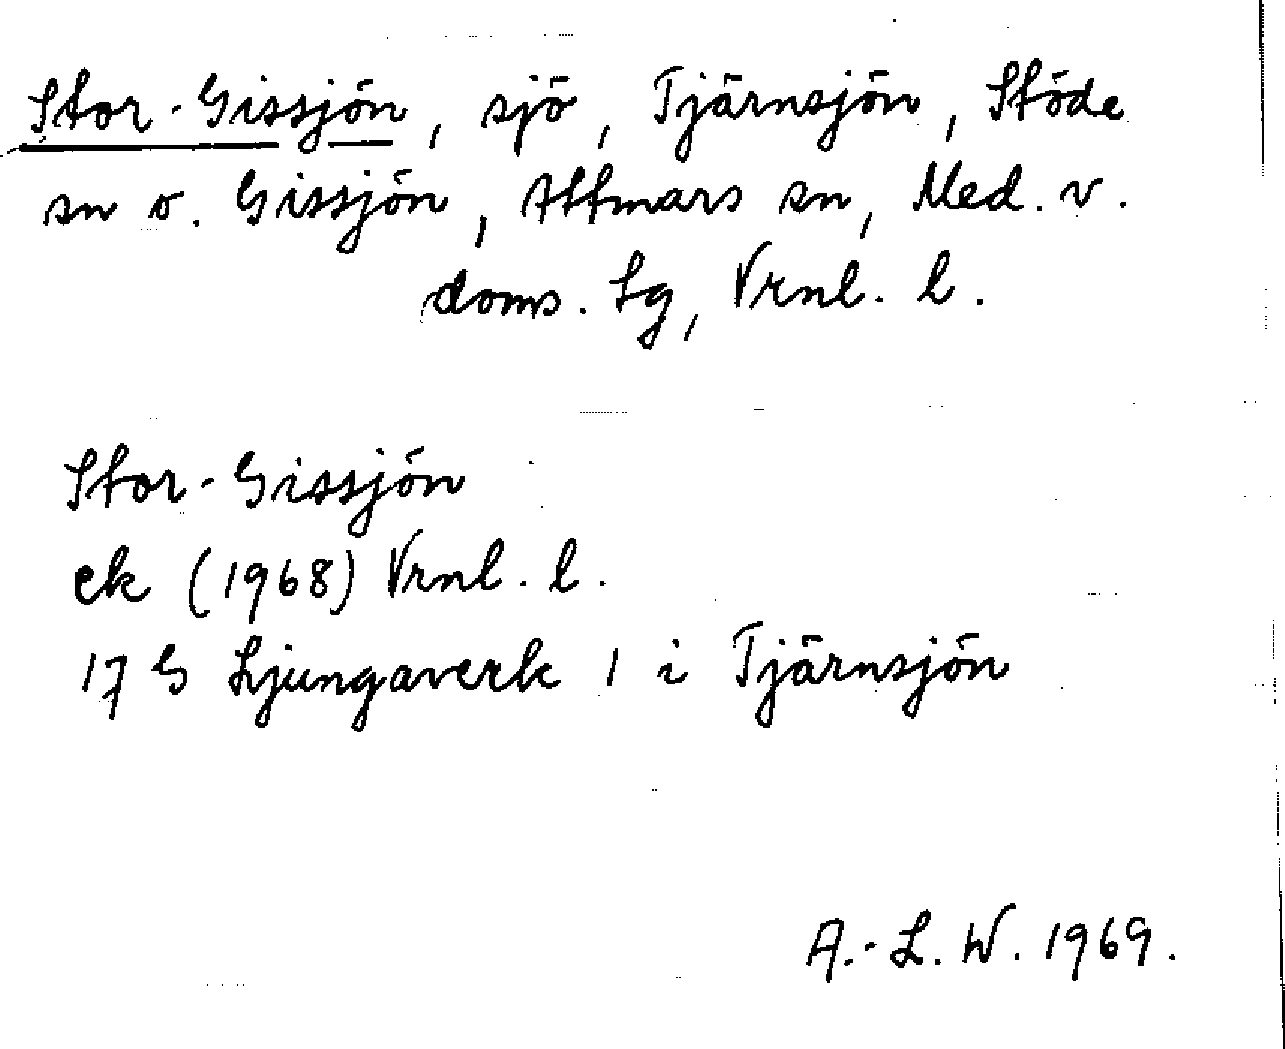 Stor-Gissjön, sjö, Tjärnsjön, Stöde
sn o. Gissjön, Attmars sn, Med. v.
doms. Lg, Vrnl. l.
Stor-Gissjön
ek (1968) Vrnl. l.
17 G Ljungaverk 1 i Tjärnsjön
A.-L. W. 1969.